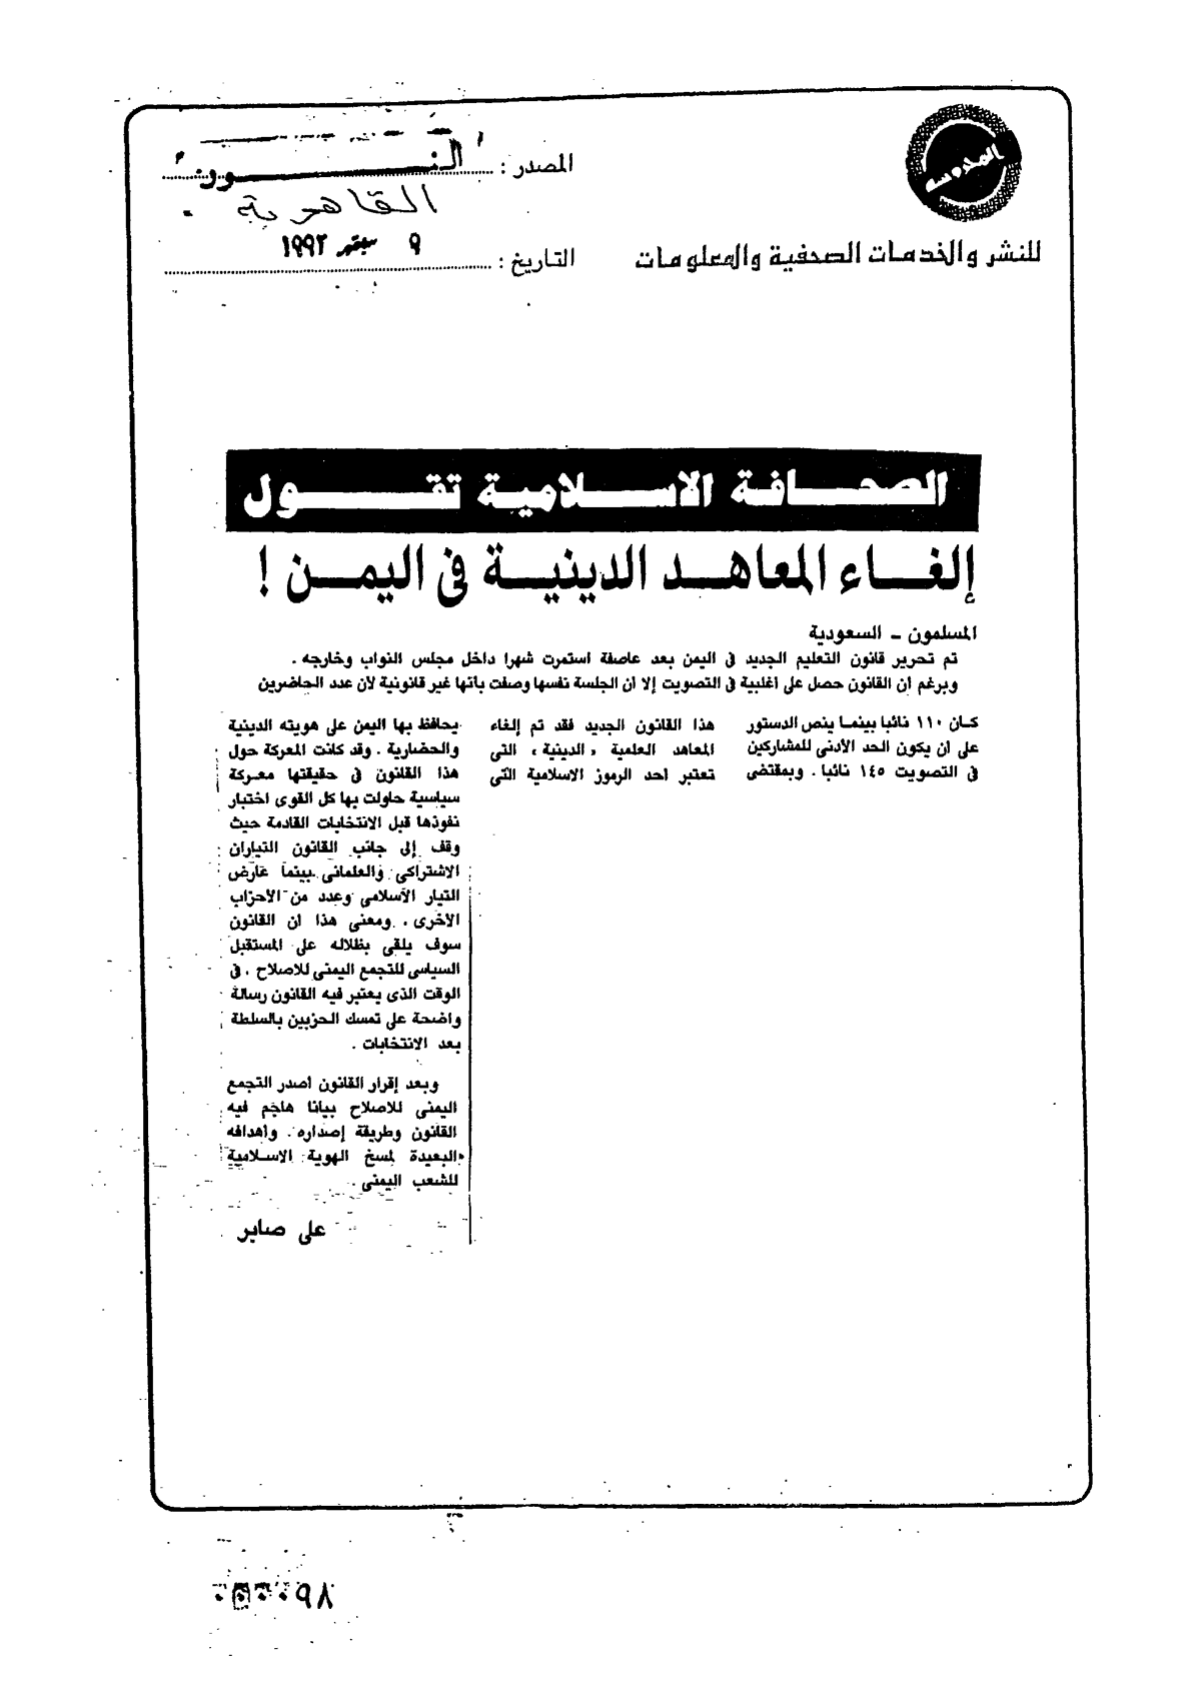 المحروسة
للنشر والخدمات الصحفية والمعلومات
المصدر :
القاهرية
التاريخ : ٩ سبتمبر ١٩٩٢
الصحافة الاسلامية تقول
إلغاء المعاهد الدينية فى اليمن !
المسلمون - السعودية
تم تحرير قانون التعليم الجديد فى اليمن بعد عاصفة استمرت شهرا داخل مجلس النواب وخارجه .
وبرغم ان القانون حصل على اغلبية فى التصويت إلا ان الجلسة نفسها وصفت بأنها غير قانونية لأن عدد الحاضرين
كان ١١٠ نائبا بينما ينص الدستور
على ان يكون الحد الأدنى للمشاركين
فى التصويت ١٤٥ نائبا . وبمقتضى
هذا القانون الجديد فقد تم إلغاء
المعاهد العلمية «الدينية» التى
تعتبر احد الرموز الاسلامية التى
يحافظ بها اليمن على هويته الدينية
والحضارية . وقد كانت المعركة حول
هذا القانون فى حقيقتها معركة
سياسية حاولت بها كل القوى اختبار
نفوذها قبل الانتخابات القادمة حيث
وقف إلى جانب القانون التياران
الاشتراكى والعلمانى بينما عارض
التيار الاسلامى وعدد من الاحزاب
الاخرى . ومعنى هذا ان القانون
سوف يلقى بظلاله على المستقبل
السياسى للتجمع اليمنى للاصلاح . فى
الوقت الذى يعتبر فيه القانون رسالة
واضحة على تمسك الحزبين بالسلطة
بعد الانتخابات .
وبعد إقرار القانون اصدر التجمع
اليمنى للاصلاح بيانا هاجم فيه
القانون وطريقة إصداره . واهدافه
البعيدة لمسخ الهوية الاسلامية
للشعب اليمنى .
على صابر